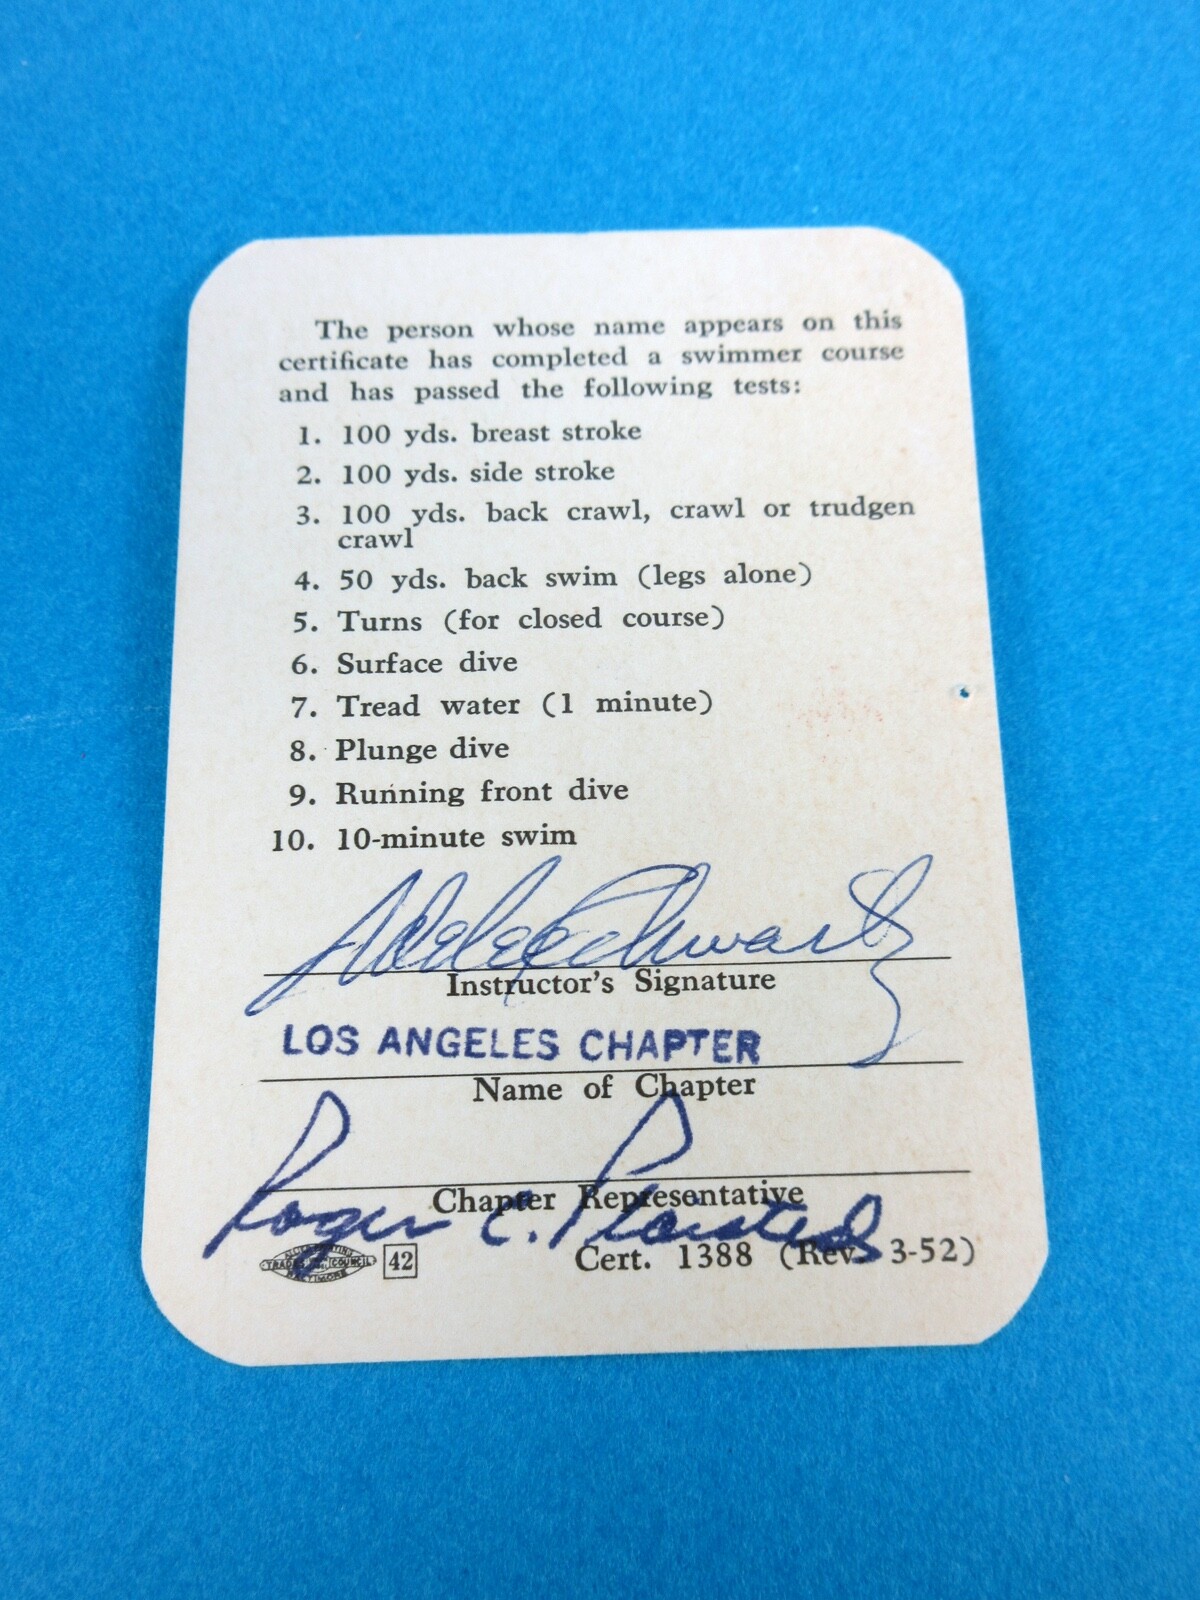 The person whose name appears on this
certificate has completed a swimmer course
and has passed the following tests:
1. 100 yds. breast stroke
2. 100 yds. side stroke
3. 100 yds. back crawl, crawl or trudgen
crawl
4. 50 yds. back swim (legs alone)
5. Turns (for closed course)
6. Surface dive
7. Tread water (1 minute)
8. Plunge dive
9. Running front dive
10. 10-minute swim
Schwartz
Instructor's Signature
LOS ANGELES CHAPTER
Name of Chapter
Chapter Representative
Roger C.
TRADES COUNCIL
BALTIMORE
42
Cert. 1388 (Rev. 3-52)